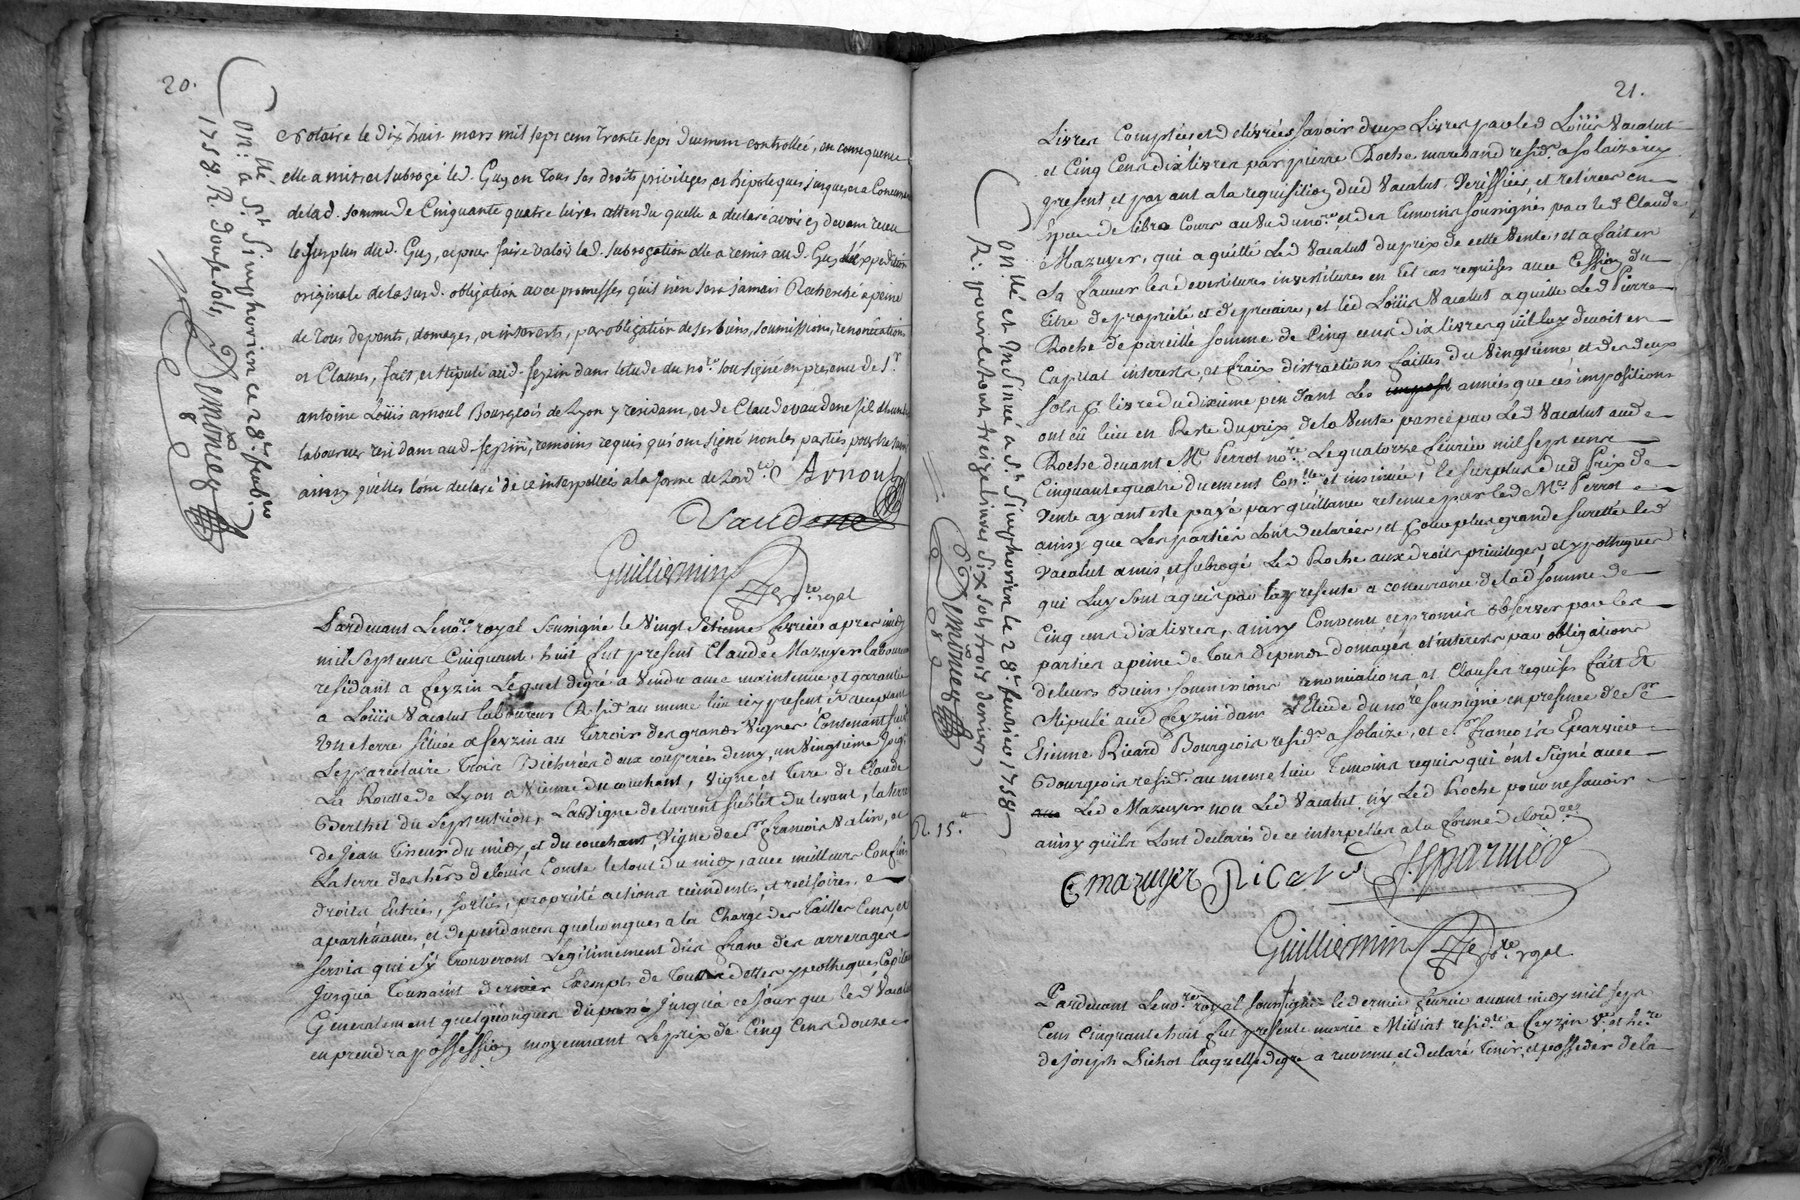 20.
Con.llé à St. Simphorien ce 28e. feb.er
1758. R. douse sols,
Notaire le dix huit mars mil sept cent trente sept duement controllée, en consequence
elle a mis et subrogé led. Guy en tous ses droits privileges, et hipoteques jusques a Concurrance
de lad. somme de Cinquante quatre livres attendu quelle a declaré avoir cy devant receu
le surplus dud. Guy, et pour faire valoir lad. subrogation elle a remis aud. Guy l'expedition
originale de la susd. obligation avec promesses qu'il n'en sera jamais Recherché a peine
de tous depents, domages, et interests, par obligation de ses biens, soumissions, renonciations
et Clauses, fait, et stipulé aud. feyzin dans l'etude du no.re soussigné en presence de Sr.
antoine Loüis arnoul Bourgeois de Lyon y residant, et de Claude vaudene fil
laboureur residant aud. feyzin, temoins requis qui ont signé non les parties pour ne savoir
ainsy qu'elles l'ont declaré de ce interpellées a la forme de l'ord.ce Arnoul
Vaudene
Guilliermin No.re royal
Pardevant Le no.re royal soussigné le vingt sétieme fevrier apres midy
mil sept cens Cinquant-huit fut present Claude Mazuyer laboureur
residant a feyzin Lequel degré a vendu avec maintenue et garantie
a Loüis Vacalut laboureur Resid.t au meme lieu icy present et acceptant
Une terre située a feyzin au terroir des grandes Vignes Contenant suivant
Le parcelaire trois Bicherées deux couperées demy, un vingtieme Joignant
La Route de Lyon a Vienne du couchant, Vigne et terre de Claude
Berthet du Septentrion, La Vigne de laurent sieblet du levant, la terre
de Jean Tireur du midy, et du couchant, Vigne de Sr. francois Valin, et
La terre des her.s de louis Comte le tout du midy, avec meilleurs Confins
droits Entrées, sorties, proprieté actions recindents, et recisoires,
apartenances, et dependances quelconques a la Charge des tailles Cens, et
servis qui s'y trouveront Legitimement dûs franc des arrerages
Jusqu'a Toussaint dernier Exempts de Toutes dettes ypotheques Capitaux
Generalement quelquonques du passé Jusqu'a ce Jour que led. Vacalut
en prendra possession moyennant Le prix de Cinq Cens douze
21.
Con.llé et Insinué à St. Simphorien le 28e. fevrier 1758
R: pour le tout treize livres six sols trois deniers
R. 15.
Livres Comptées et delivrées savoir deux Livres par led Loüis Vacalut
et Cinq Cens dix livres par pierre Roche marchand resid.t a solaize icy
present et payant a la requisition dud Vacalut, Veriffiées, et retirées en
Espece de libre Cours au Vu du no.re et des temoins soussignés par led Claude
Mazuyer, qui a quitté Led Vacalut du prix de cette Vente, et a fait en
Sa faveur les devestitures investitures en tel cas requises avec Cession du
titre de proprieté et de precaire, et led Loüis Vacalut a quitté Led Pierre
Roche de pareille somme de Cinq cens dix livres qu'il luy devoit en
Capital interests, et fraix distractions faittes du Vingtieme, et des deux
sols p. livre du dixieme pendant Les années que ces impositions
ont eû lieu en Reste du prix de la Vente passé par Led Vacalut aud
Roche devant Me. Perrot no.re Le quatorze fevrier mil sept cens
Cinquante quatre duement Con.llé et insinuée, le surplus dud Prix de
Vente ayant esté payé par quittance retenue par led Me. Perrot
ainsy que Les parties L'ont declarées, et pour plus grande suretté led
Vacalut a mis, et subrogé Led Roche aux droits privileges, et ypotheques
qui Luy sont aquis par la presente a concurrance de lad somme de
Cinq cens dix livres, ainsy Convenu, et promis observer par les
parties a peine de tous depends domages et interests par obligations
de leurs Biens soumissions renonciations et Clauses requises fait et
stipulé aud feyzin dans l'Etude du no.re soussigné en presence de Sr.
Etienne Ricard Bourgeois resid.t a solaize, et Sr. francois Eparvier
Bourgeois resid.t au meme lieu temoins requis qui ont signé avec
Led Mazuyer non Led Vacalut, ny Led Roche pour ne savoir
ainsy qu'ils L'ont declarés de ce interpellés a la forme de l'ord.ces
C mazuyer Ricard f. Eparvier
Guilliermin No.re royal
Pardevant Le no.re royal soussigné le dernier fevrier avant midy mil sept
Cens Cinquante huit fut presente marie Milliat resid.te a feyzin V.e et he.re
de Joseph Pichot laquelle degré a reconnu, et declaré tenir, et posseder de la